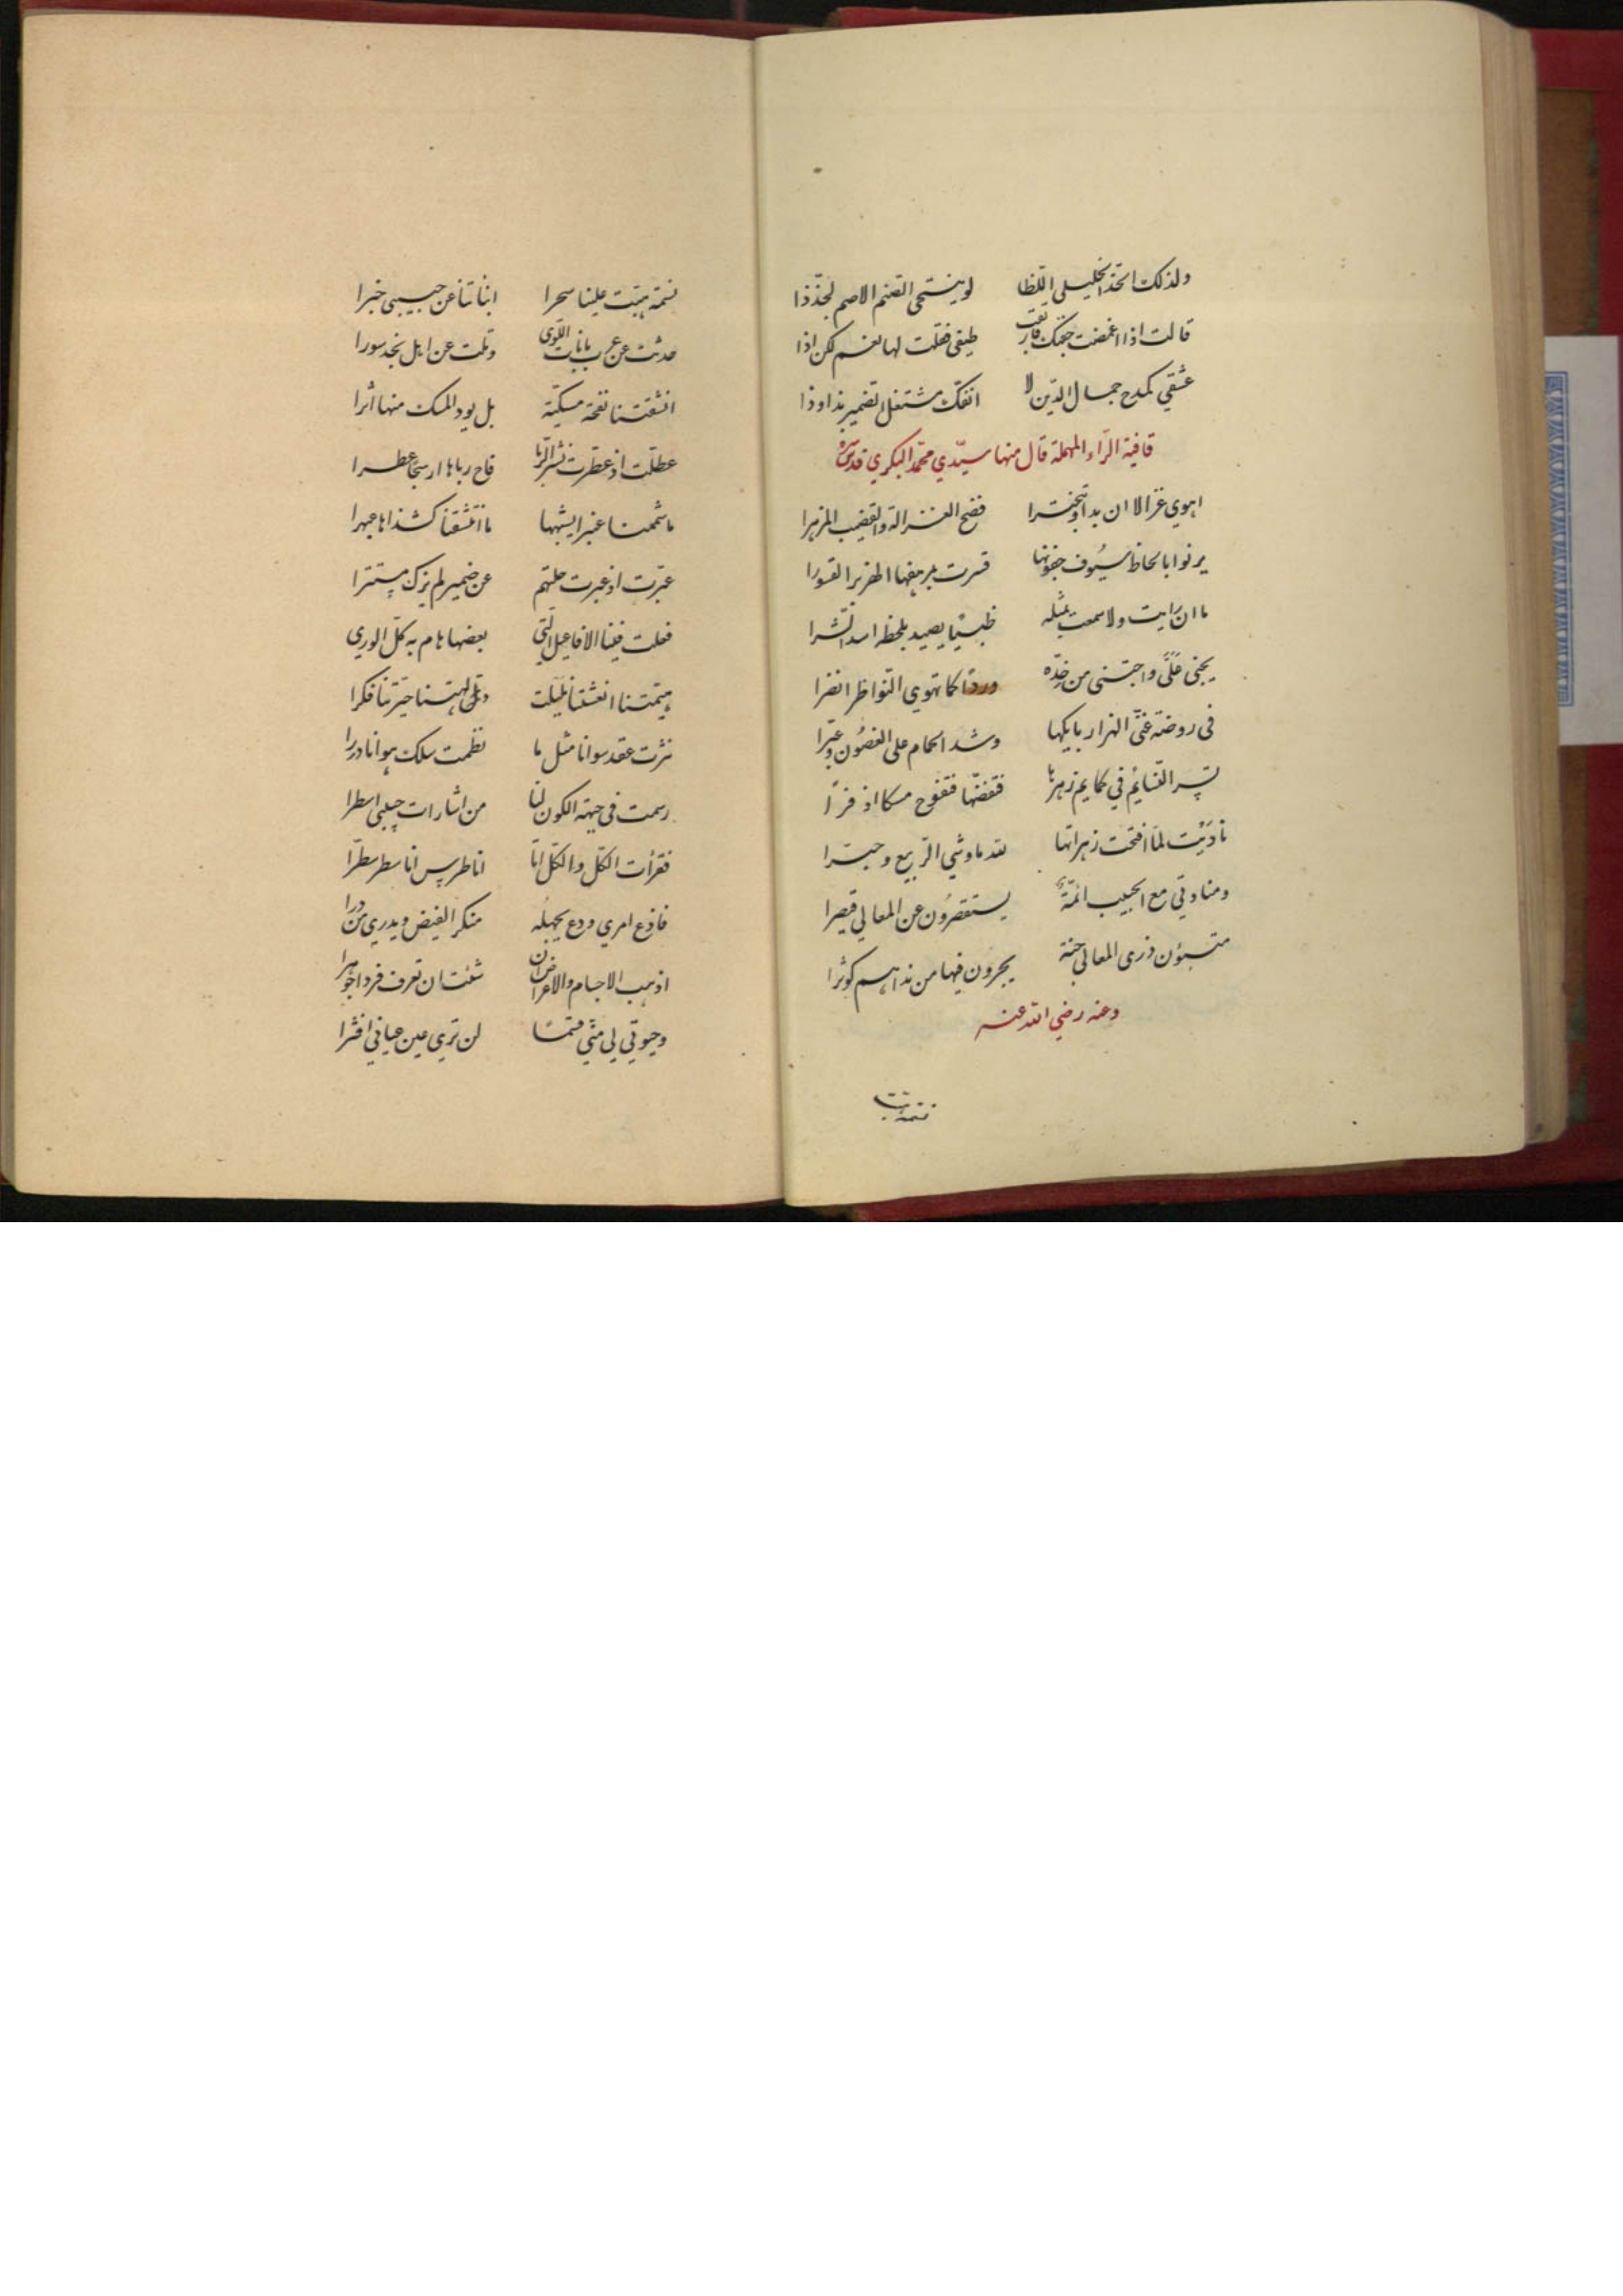 ولذلك اتخذ الخليلي اللظا لو ينتمي الصنم الاصم لجذذا
قالت اذا اغمضت جفنك فارتقب طيفي فقلت لها نعم لكن اذا
عشقي كمدح جمال الدين لا انفك مشتغل الضمير بذا وذا
قافية الراء المهملة قال منها سيدي محمد البكري قدس سره
اهوي غزالا ان بدا وتبخترا فضح الغزالة والقضيب المزهرا
يرنوا بالحاظ سيوف جفونها قسرت بمرهفها الهزبر القسورا
ما ان رايت ولا سمعت بمثله ظبيا يصيد بلحظه اسد الشرا
يجني علي واجتني من خده وردا كما تهوي النواظر انضرا
في روضة غني الهزار بايكها وشدا الحمام على الغصون وعبرا
تسر النسايم في كمايم زهرها فتفضها فتفوح مسكا اذفرا
ناديت لما افتحت زهراتها لله ما وشي الربيع وحبرا
ومنادتي مع الحبيب ائمة يستقصرون عن المعالي قيصرا
متبوئون ذرى المعالي جنة يجرون فيها من نداهم كوثرا
وعنه رضي الله عنه
نسمة هبت
نسمة هبت علينا سحرا انباتنا عن حبيبي خبرا
حدثت عن عرب بانات اللوي وتلت عن اهل نجد سورا
انشقتنا نفحة مسكية بل يود المسك منها اثرا
عطلت اذ عطرت نشر الربا فاح رياها اريجا عطرا
ما شممنا عنبرا يشبهها ما انتشقنا كشذاها عبهرا
عبرت اذ عبرت حلتهم عن ضمير لم يزل مستترا
فعلت فينا الافاعيل التي بعضها هام به كل الوري
هيمتنا انعشتنا بلبلت ولهتنا حيرتنا فكرا
نثرت عقد سوانا مثل ما نظمت سلك هوانا دررا
رسمت في جبهة الكون لنا من اشارات حبيبي اسطرا
فقرأت الكل والكل انا انا طرس انا سطر سطرا
فاذع امري ودع يجهله منكر الفيض ويدري من درا
اذهب الاجسام والاعراض ان شئت ان تعرف فردا جوهرا
وحيوتي لي مني قسما لن تري عين عياني افترا